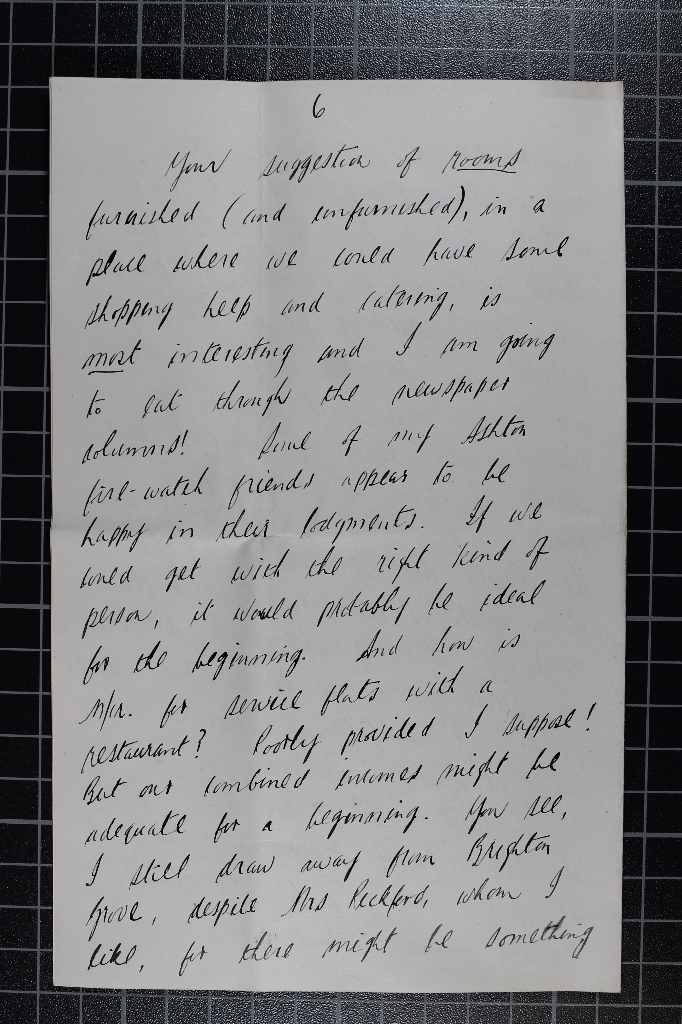 6
Your suggestion of rooms
furnished (and unfurnished), in a
place where we could have some
shopping help and catering, is
most interesting and I am going
to eat through the newspaper
columns! Some of my Ashton
fire-watch friends appear to be
happy in their lodgments. If we
could get with the right kind of
person, it would probably be ideal
for the beginning. And how is
M/cr. for service flats with a
restaurant? Poorly provided I suppose!
But our combined incomes might be
adequate for a beginning. You see,
I still draw away from Brighton
Grove, despite Mrs Peckford, whom I
like, for there might be something